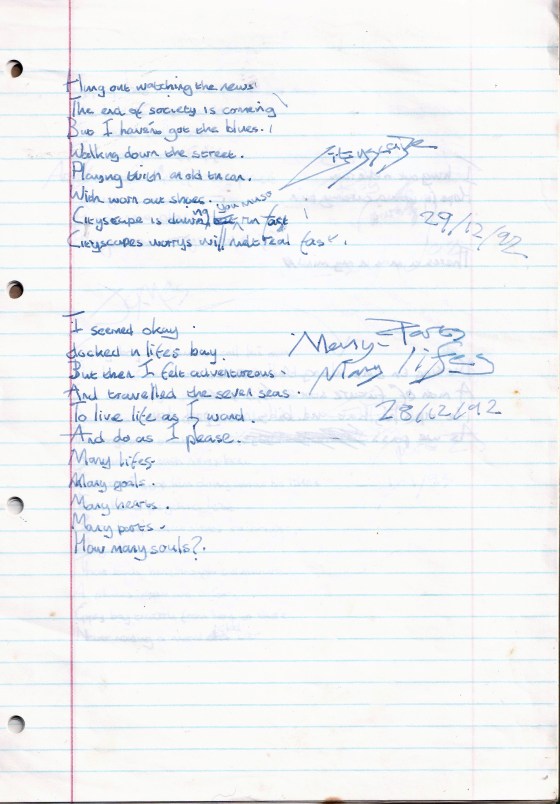 Hung out watching the news
The end of society is coming
But I havent got the blues.
Walking down the street.
Playing with an old tin can.
With worn out shoes.
Cityscape
you must
Cityscape is dawning run fast
Cityscapes worrys will melt real fast.
29/12/92
I seemed okay.
docked in lifes bay.
But then I felt adventureous.
And travelled the seven seas.
To live life as I wand.
And do as I please.
Many lifes.
Many goals.
Many hearts.
Many ports.
How many souls?.
Many-Ports
Many lifes
28/12/92